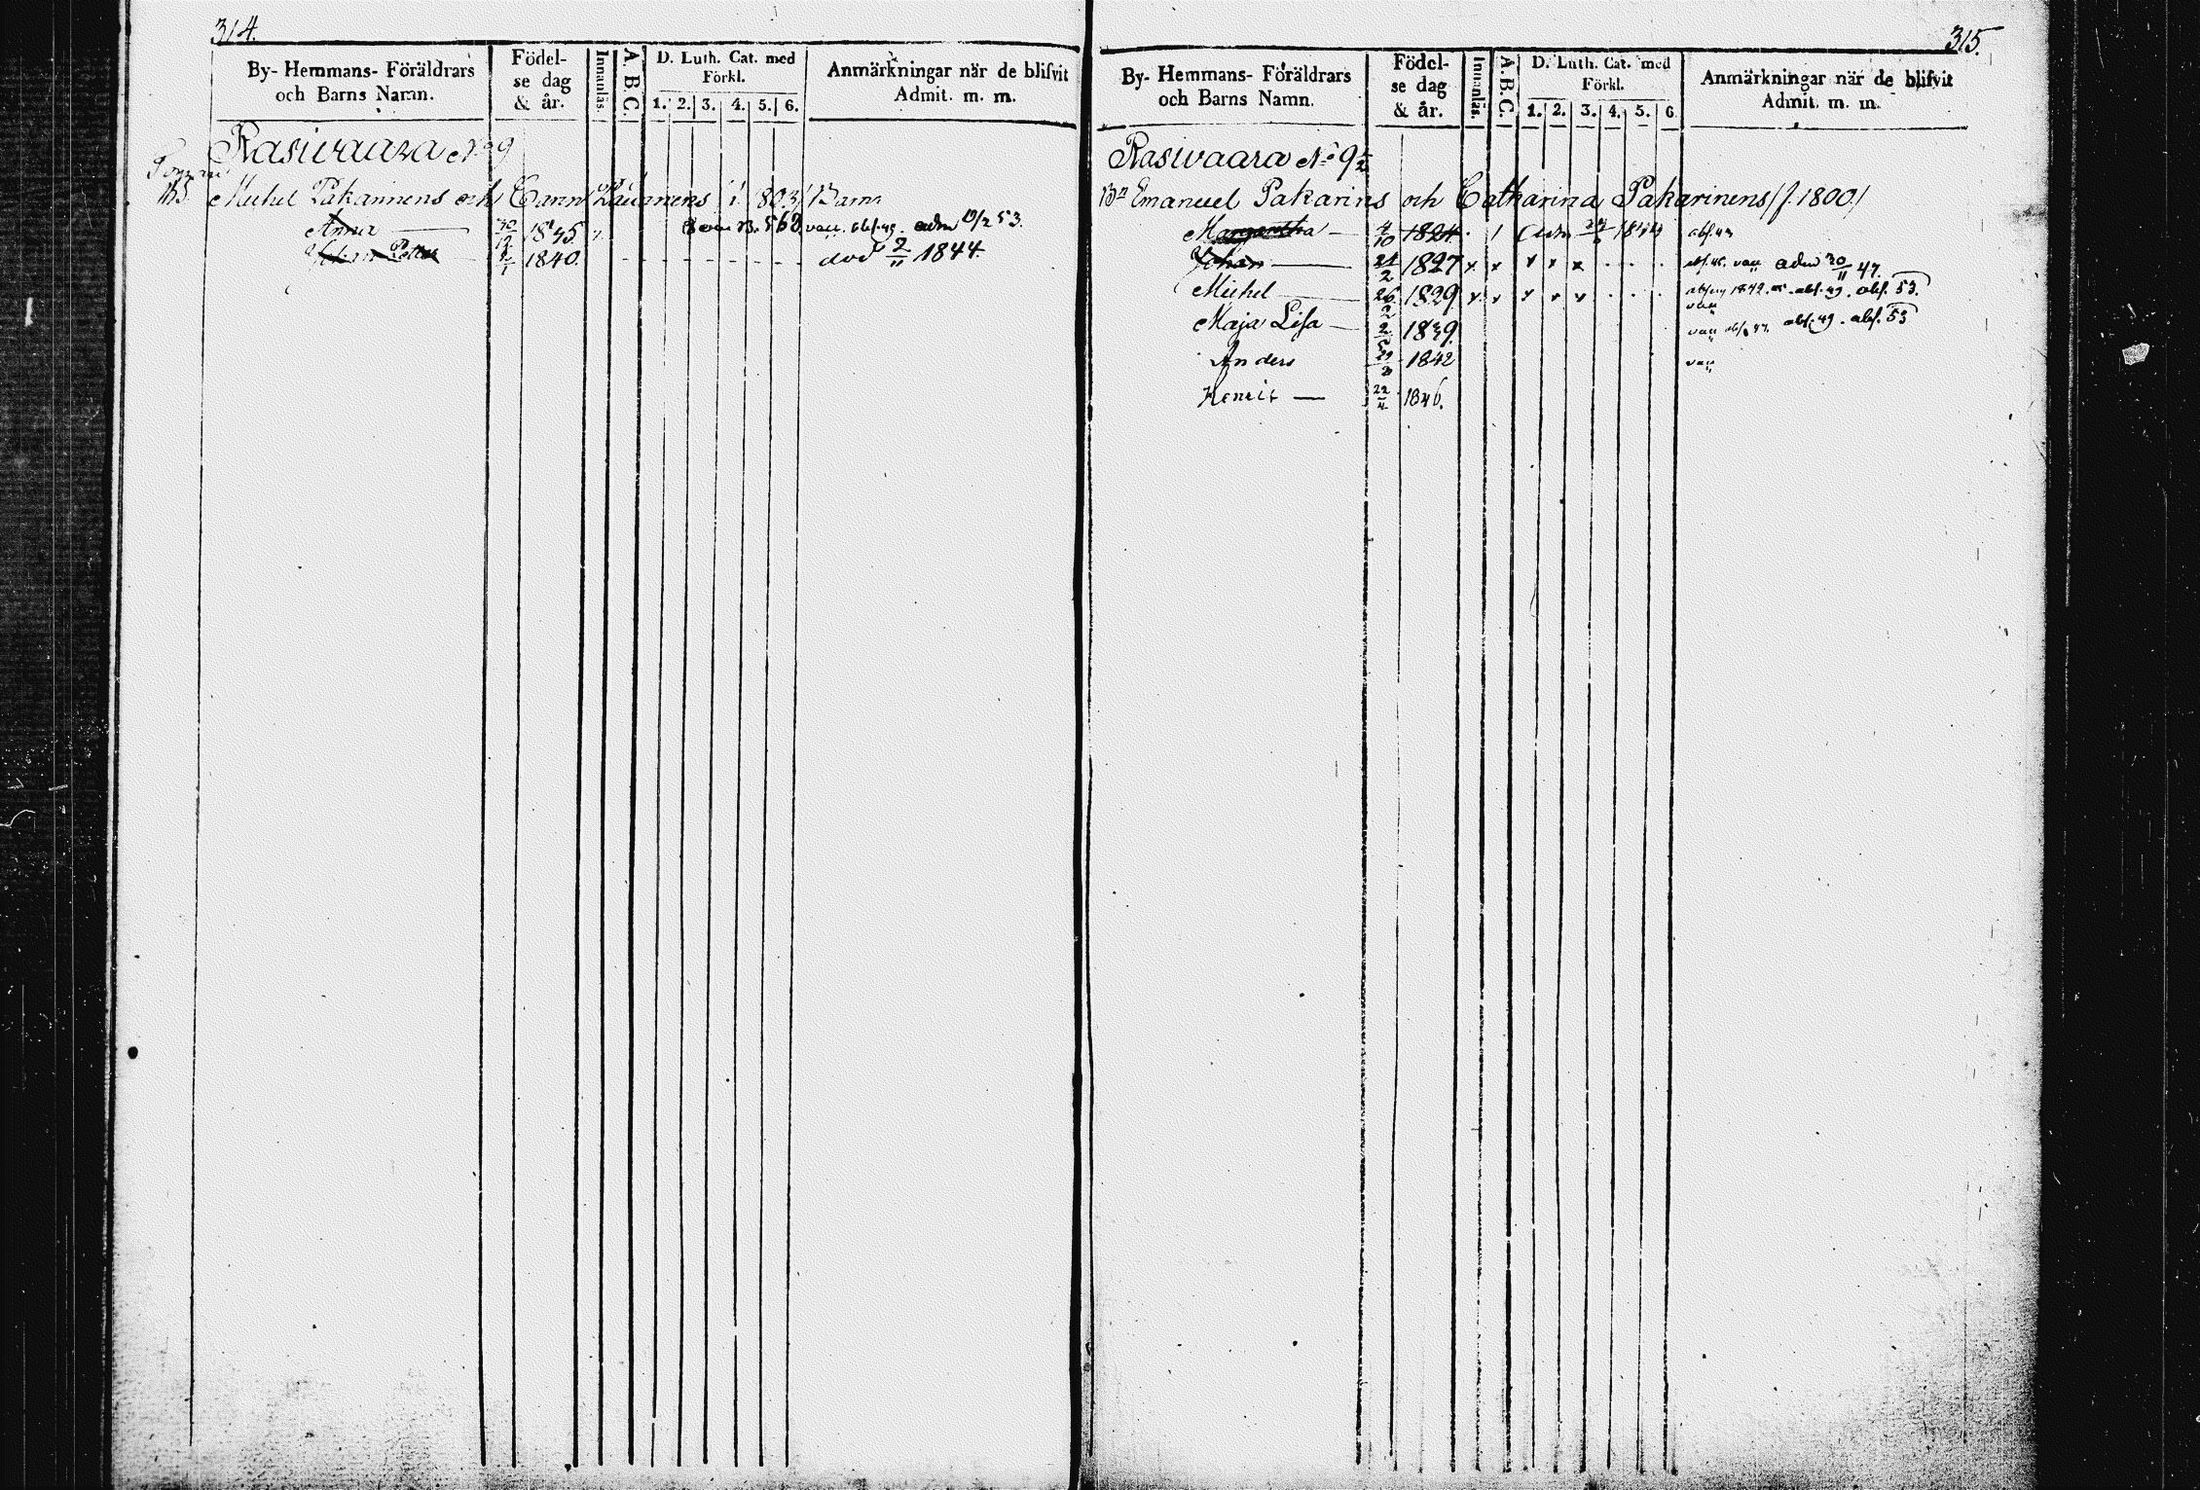 314.
By- Hemmans- Föräldrars och Barns Namn.
Födel- se dag & år.
Innanläs.
A. B. C.
D. Luth. Cat. med Förkl.
1. 2. 3. 4. 5. 6.
Anmärkningar när de blifvit Admit. m. m.
Rasivaara No 9
Michel Pakarinens och Barn
Anna 30/12 18 vacc. abs. 49. adm 53.
Johan Petter 1840. död 2/11 1844.
315.
By- Hemmans- Föräldrars och Barns Namn.
Födel- se dag & år.
Innanläs.
A. B. C.
D. Luth. Cat. med Förkl.
1. 2. 3. 4. 5. 6
Anmärkningar när de blifvit Admit. m. m.
Rasivaara No 9
Bn Emanuel Pakarins och Catharina Pakarinens (f. 1800)
Margaretha 4/10 1824 adm
Johan 24/2 1827 x x x x x vacc adm 30/11 47.
Michel 26/2 1829 x x x x x abs. 49. abs. 53.
Maja Lisa 1839. vacc abs. 49. abs. 53
Anders 1842 vacc
Henric 22/4 1846.